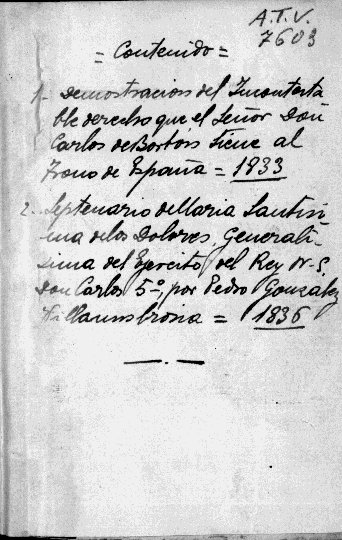 A.T.V.
7603
= Contenido =
1- Demostracion del Incontesta
ble derecho que el Señor Don
Carlos de Borbón tiene al
Trono de España = 1833
2. Septenario de Maria Santisi
ma de los Dolores, Generali-
sima del Ejercito, del Rey N. S.
Don Carlos 5º, por Pedro Gonzalez
Villaumbrosa = 1836